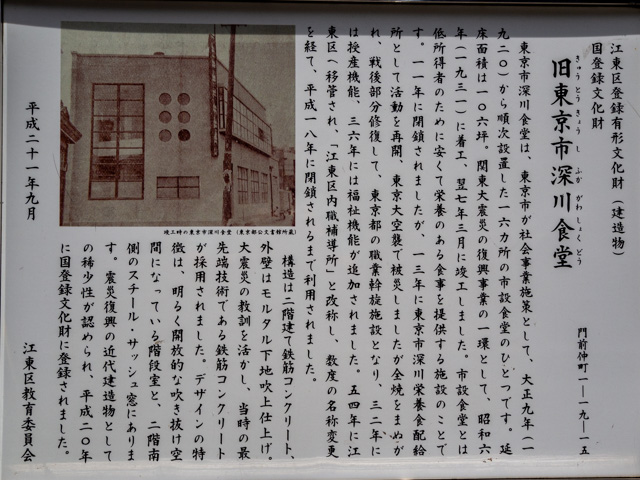 江東区登録有形文化財（建造物）
国登録文化財
旧東京市深川食堂
きゅうとうきょうしふかがわしょくどう
門前仲町一―一九―一五
東京市深川食堂は、東京市が社会事業施策として、大正九年（一
九二〇）から順次設置した一六カ所の市設食堂のひとつです。延
床面積は一〇六坪。関東大震災の復興事業の一環として、昭和六
年（一九三一）に着工、翌七年三月に竣工しました。市設食堂とは
低所得者のために安くて栄養のある食事を提供する施設のことで
す。一一年に閉鎖されましたが、一三年に東京市深川栄養食配給
所として活動を再開、東京大空襲で被災しましたが全焼をまぬが
れ、戦後部分修復して、東京都の職業斡旋施設となり、三二年に
は授産機能、三六年には福祉機能が追加されました。五四年に江
東区へ移管され、「江東区内職補導所」と改称し、数度の名称変更
を経て、平成一八年に閉鎖されるまで利用されました。
構造は二階建て鉄筋コンクリート、
外壁はモルタル下地吹上仕上げ。
大震災の教訓を活かし、当時の最
先端技術である鉄筋コンクリート
が採用されました。デザインの特
徴は、明るく開放的な吹き抜け空
間になっている階段室と、二階南
側のスチール・サッシュ窓にありま
す。震災復興の近代建造物として
の稀少性が認められ、平成二〇年
に国登録文化財に登録されました。
竣工時の東京市深川食堂（東京都公文書館所蔵）
平成二十一年九月
江東区教育委員会